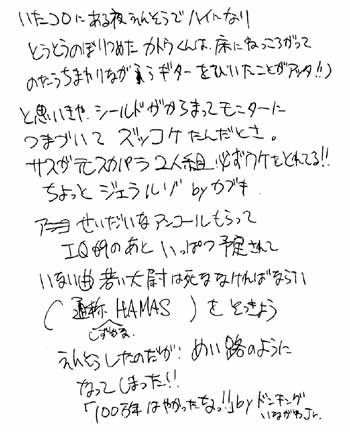 いたコロにある夜えんそうでハイになり
とうとうのぼりつめたカトウくんは、床にねっころがって
のたうちまわりながらギターをひいたことがアッタ!!)
と思いきや、シールドがからまってモニターに
つまづいて ズッコケたんだとさ。
サスが元スカパラ2人組 必ずウケをとれてる!!
ちょっと ジェラルゾ byカブキ
せいだいなアンコールもらって
IQ69のあと いっぱつ予定されて
いない曲 若い大尉は死ななければならない
(通称 HAMAS)を とっきょう
しずかる
えんそうしたのだが! めい路のように
なってしまった!!
「100万年はやかったなっ!!」by ドンキング
いながわJr.